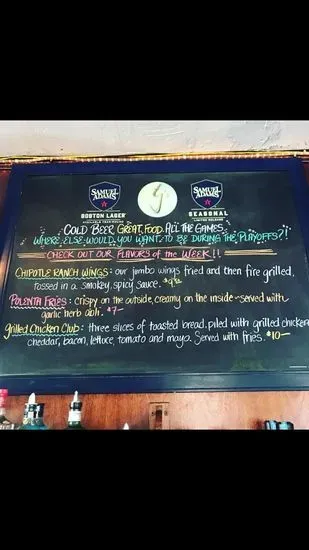 SAMUEL ADAMS
BOSTON LAGER
AVAILABLE YEAR-ROUND
SAMUEL ADAMS
SEASONAL
LIMITED RELEASE
COLD BEER, GREAT FOOD, ALL THE GAMES
WHERE ELSE WOULD YOU WANT TO BE DURING THE PLAYOFFS?!
CHECK OUT OUR FLAVORS of the WEEK!!
CHIPOTLE RANCH WINGS: our jumbo wings fried and then fire grilled,
tossed in a smokey, spicy sauce.
POLENTA FRIES: crispy on the outside, creamy on the inside - served with
garlic herb aoli. $7-
Grilled Chicken Club: three slices of toasted bread, piled with grilled chicken,
cheddar, bacon, lettuce, tomato and mayo. Served with fries. $10-